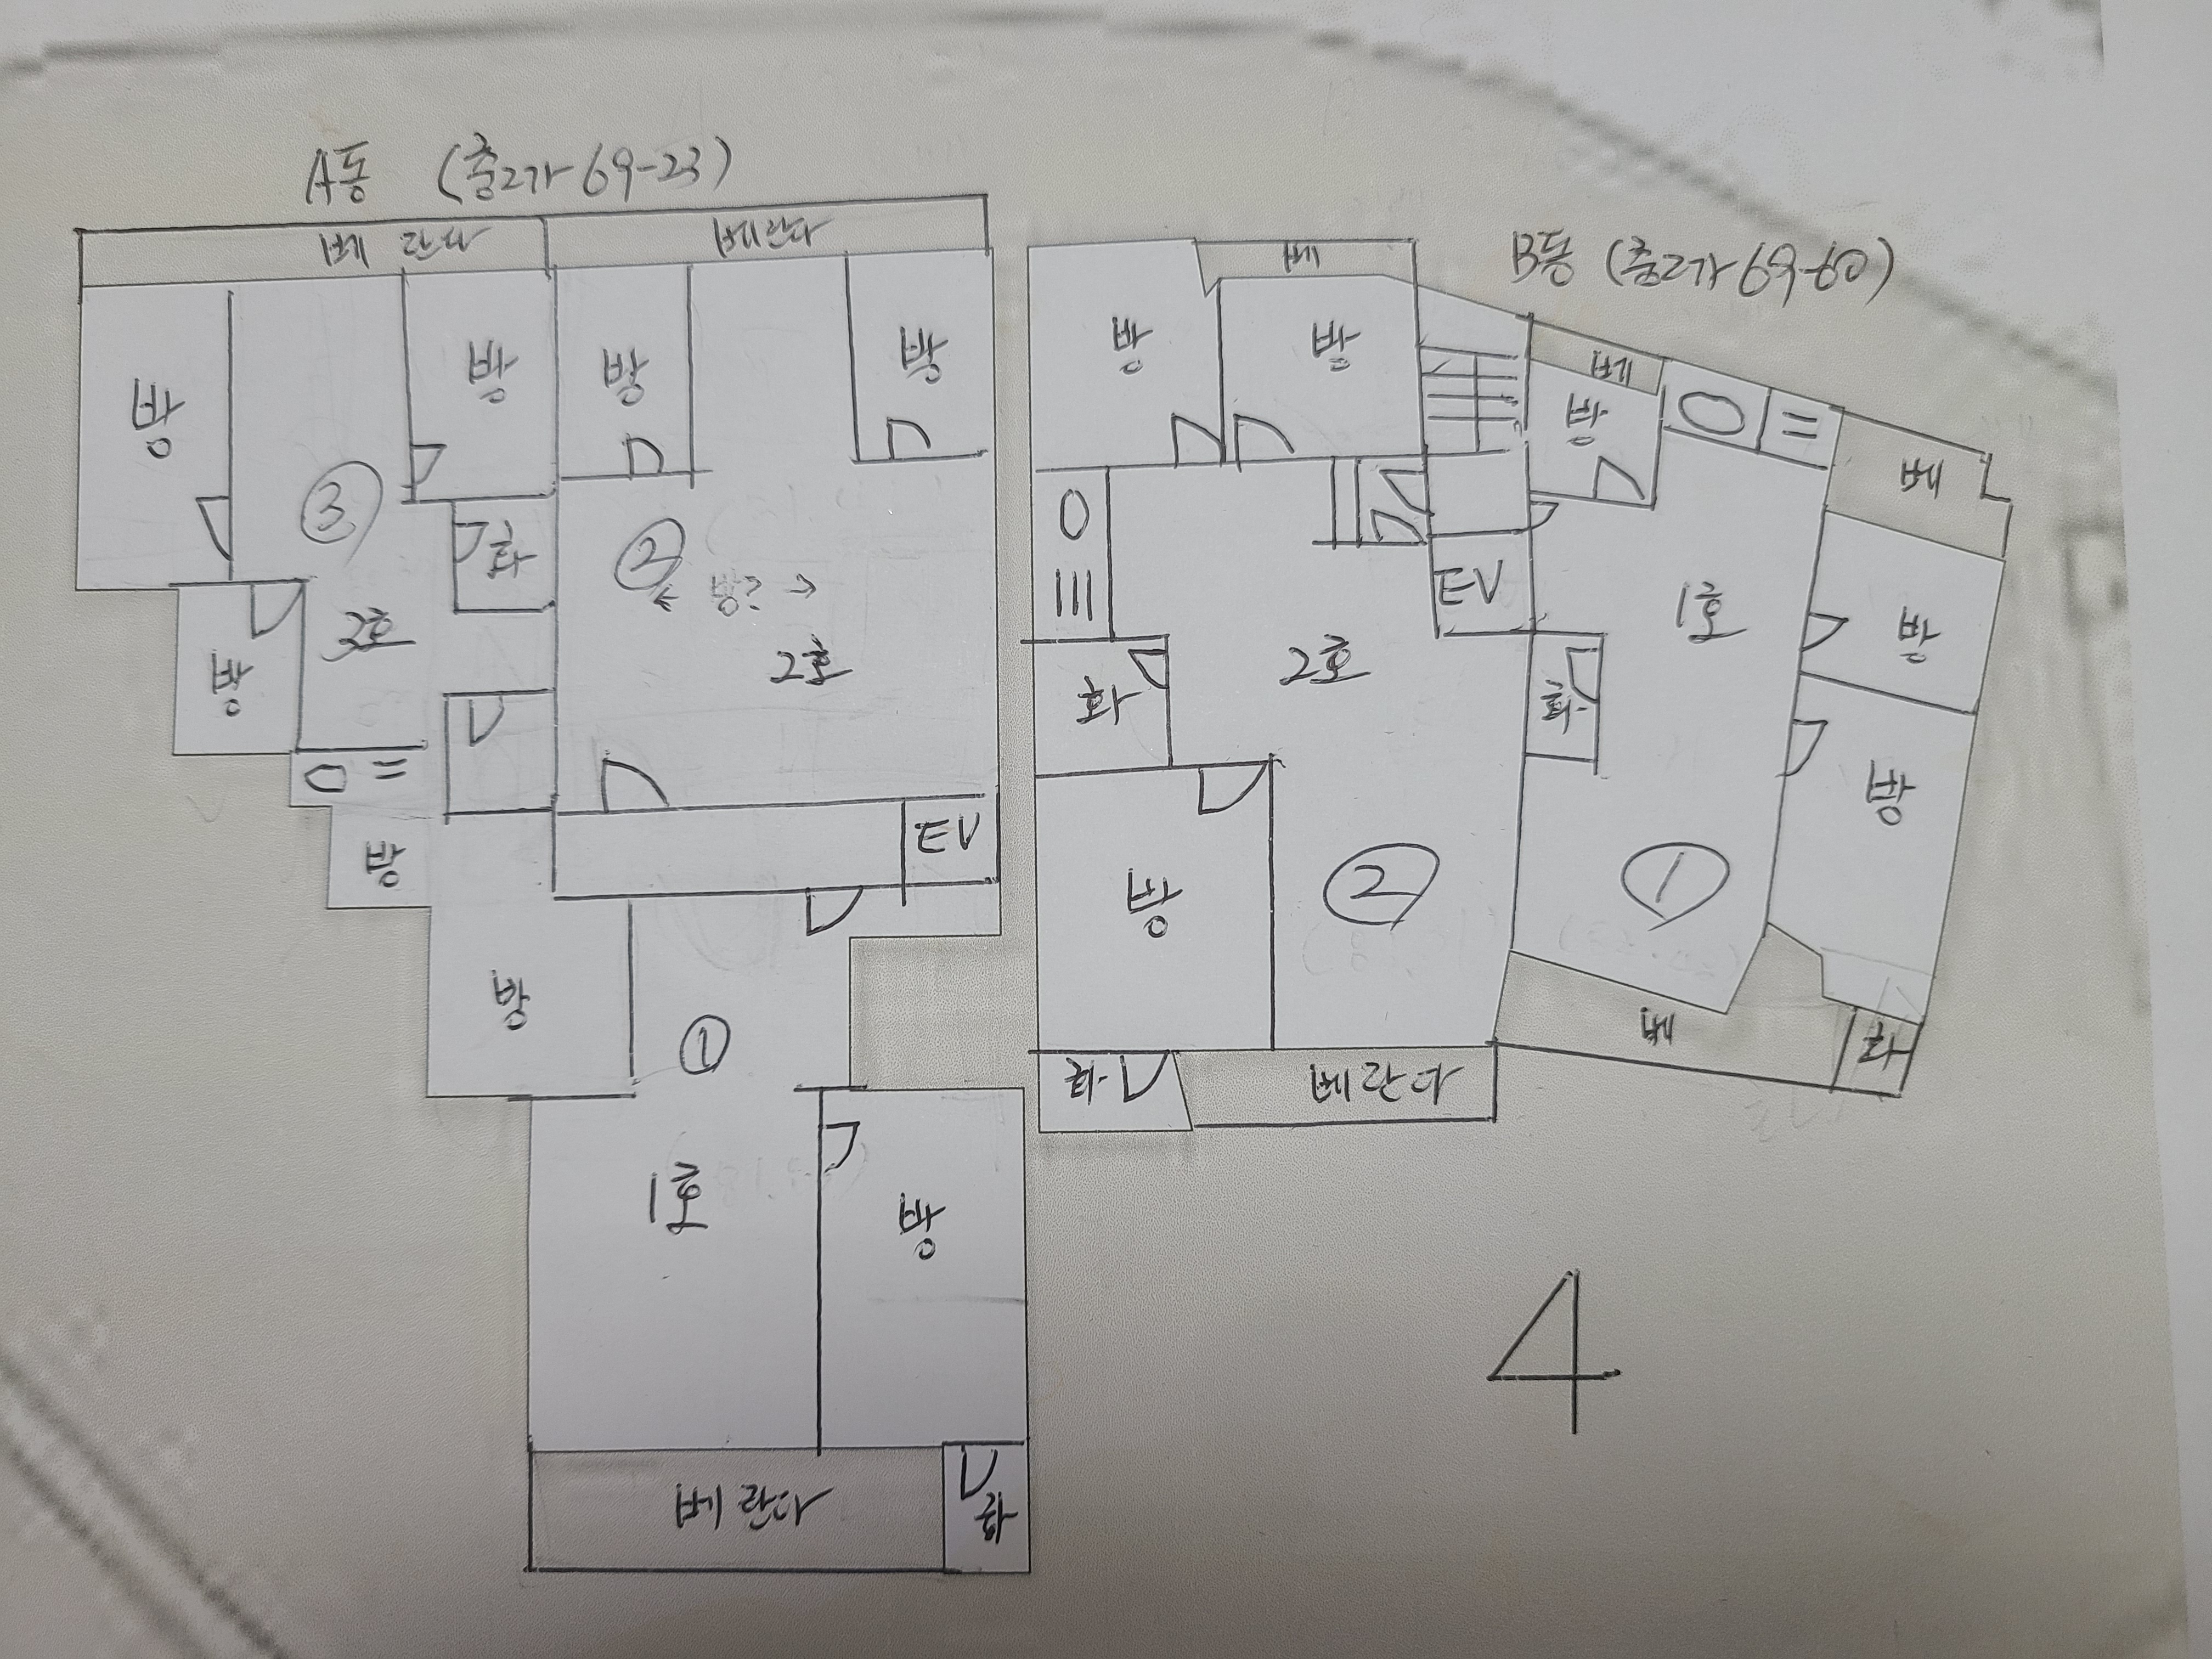 A동 (충2가 69-23)
베란다
베란다
방
방
방
방
③
화
②
← 방? →
3호
2호
방
방
EV
방
①
1호
방
베란다
화
B동 (충2가 69-60)
베
방
방
베
방
베
EV
1호
방
2호
화
화
방
방
②
①
베
화
베란다
화
4